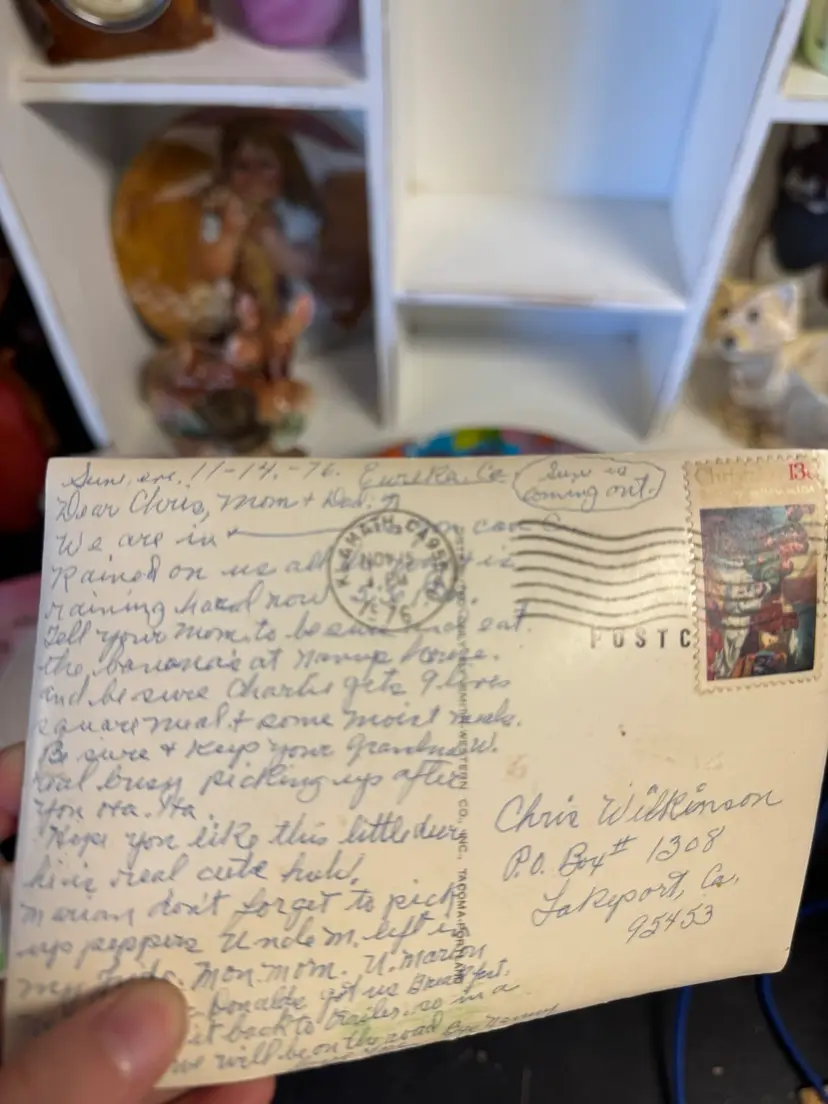 Sun. 11-14-76. Eureka, Ca.
Sun is
coming out.
Dear Chris, Mom + Dad:
We are in
Rained on us all is
raining hard now
Tell your Mom to be sure eat
the banana's at Nanny's house.
and be sure Charlie gets 9 lives
square meal + some moist meals.
Be sure + keep your Grandma W.
real busy picking up after
you Ha. Ha.
Hope you like this little deer
he is real cute huh!
Marian don't forget to pick
up peppers Uncle M. left in
my Mon. morn. U. Marion
Donalds got us Breakfast.
it back to trailer. so in a
we will be on the road Bye Nanny
KLAMATH CA 955
NOV 15
1976
Christmas
13c
POSTC
SMITH-WESTERN CO., INC., TACOMA-PORTLAND
Chris Wilkinson
P.O. Box # 1308
Lakeport, Ca,
95453